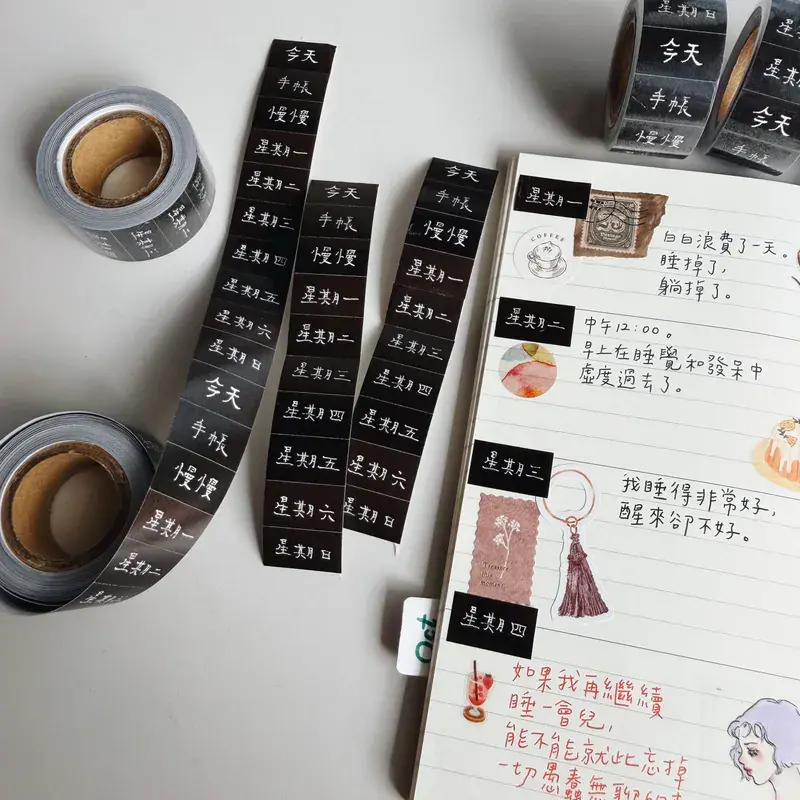 今天
手帳
慢慢
星期一
星期二
星期三
星期四
星期五
星期六
星期日
今天
手帳
慢慢
星期一
星期二
今天
手帳
慢慢
星期一
星期二
星期三
星期四
星期五
星期六
星期日
今天
手帳
慢慢
星期一
星期二
星期三
星期四
星期五
星期六
星期日
星期日
今天
手帳
慢慢
星期
今天
手帳
星期一
COFFEE
白白浪費了一天。
睡掉了,
躺掉了。
星期二
中午12:00。
早上在睡覺和發呆中
虛度過去了。
星期三
找睡得非常好,
醒來卻不好。
Treasure
this
moment
星期四
Oct
如果我再繼續
睡一會兒,
能不能就此忘掉
一切愚蠢無聊的